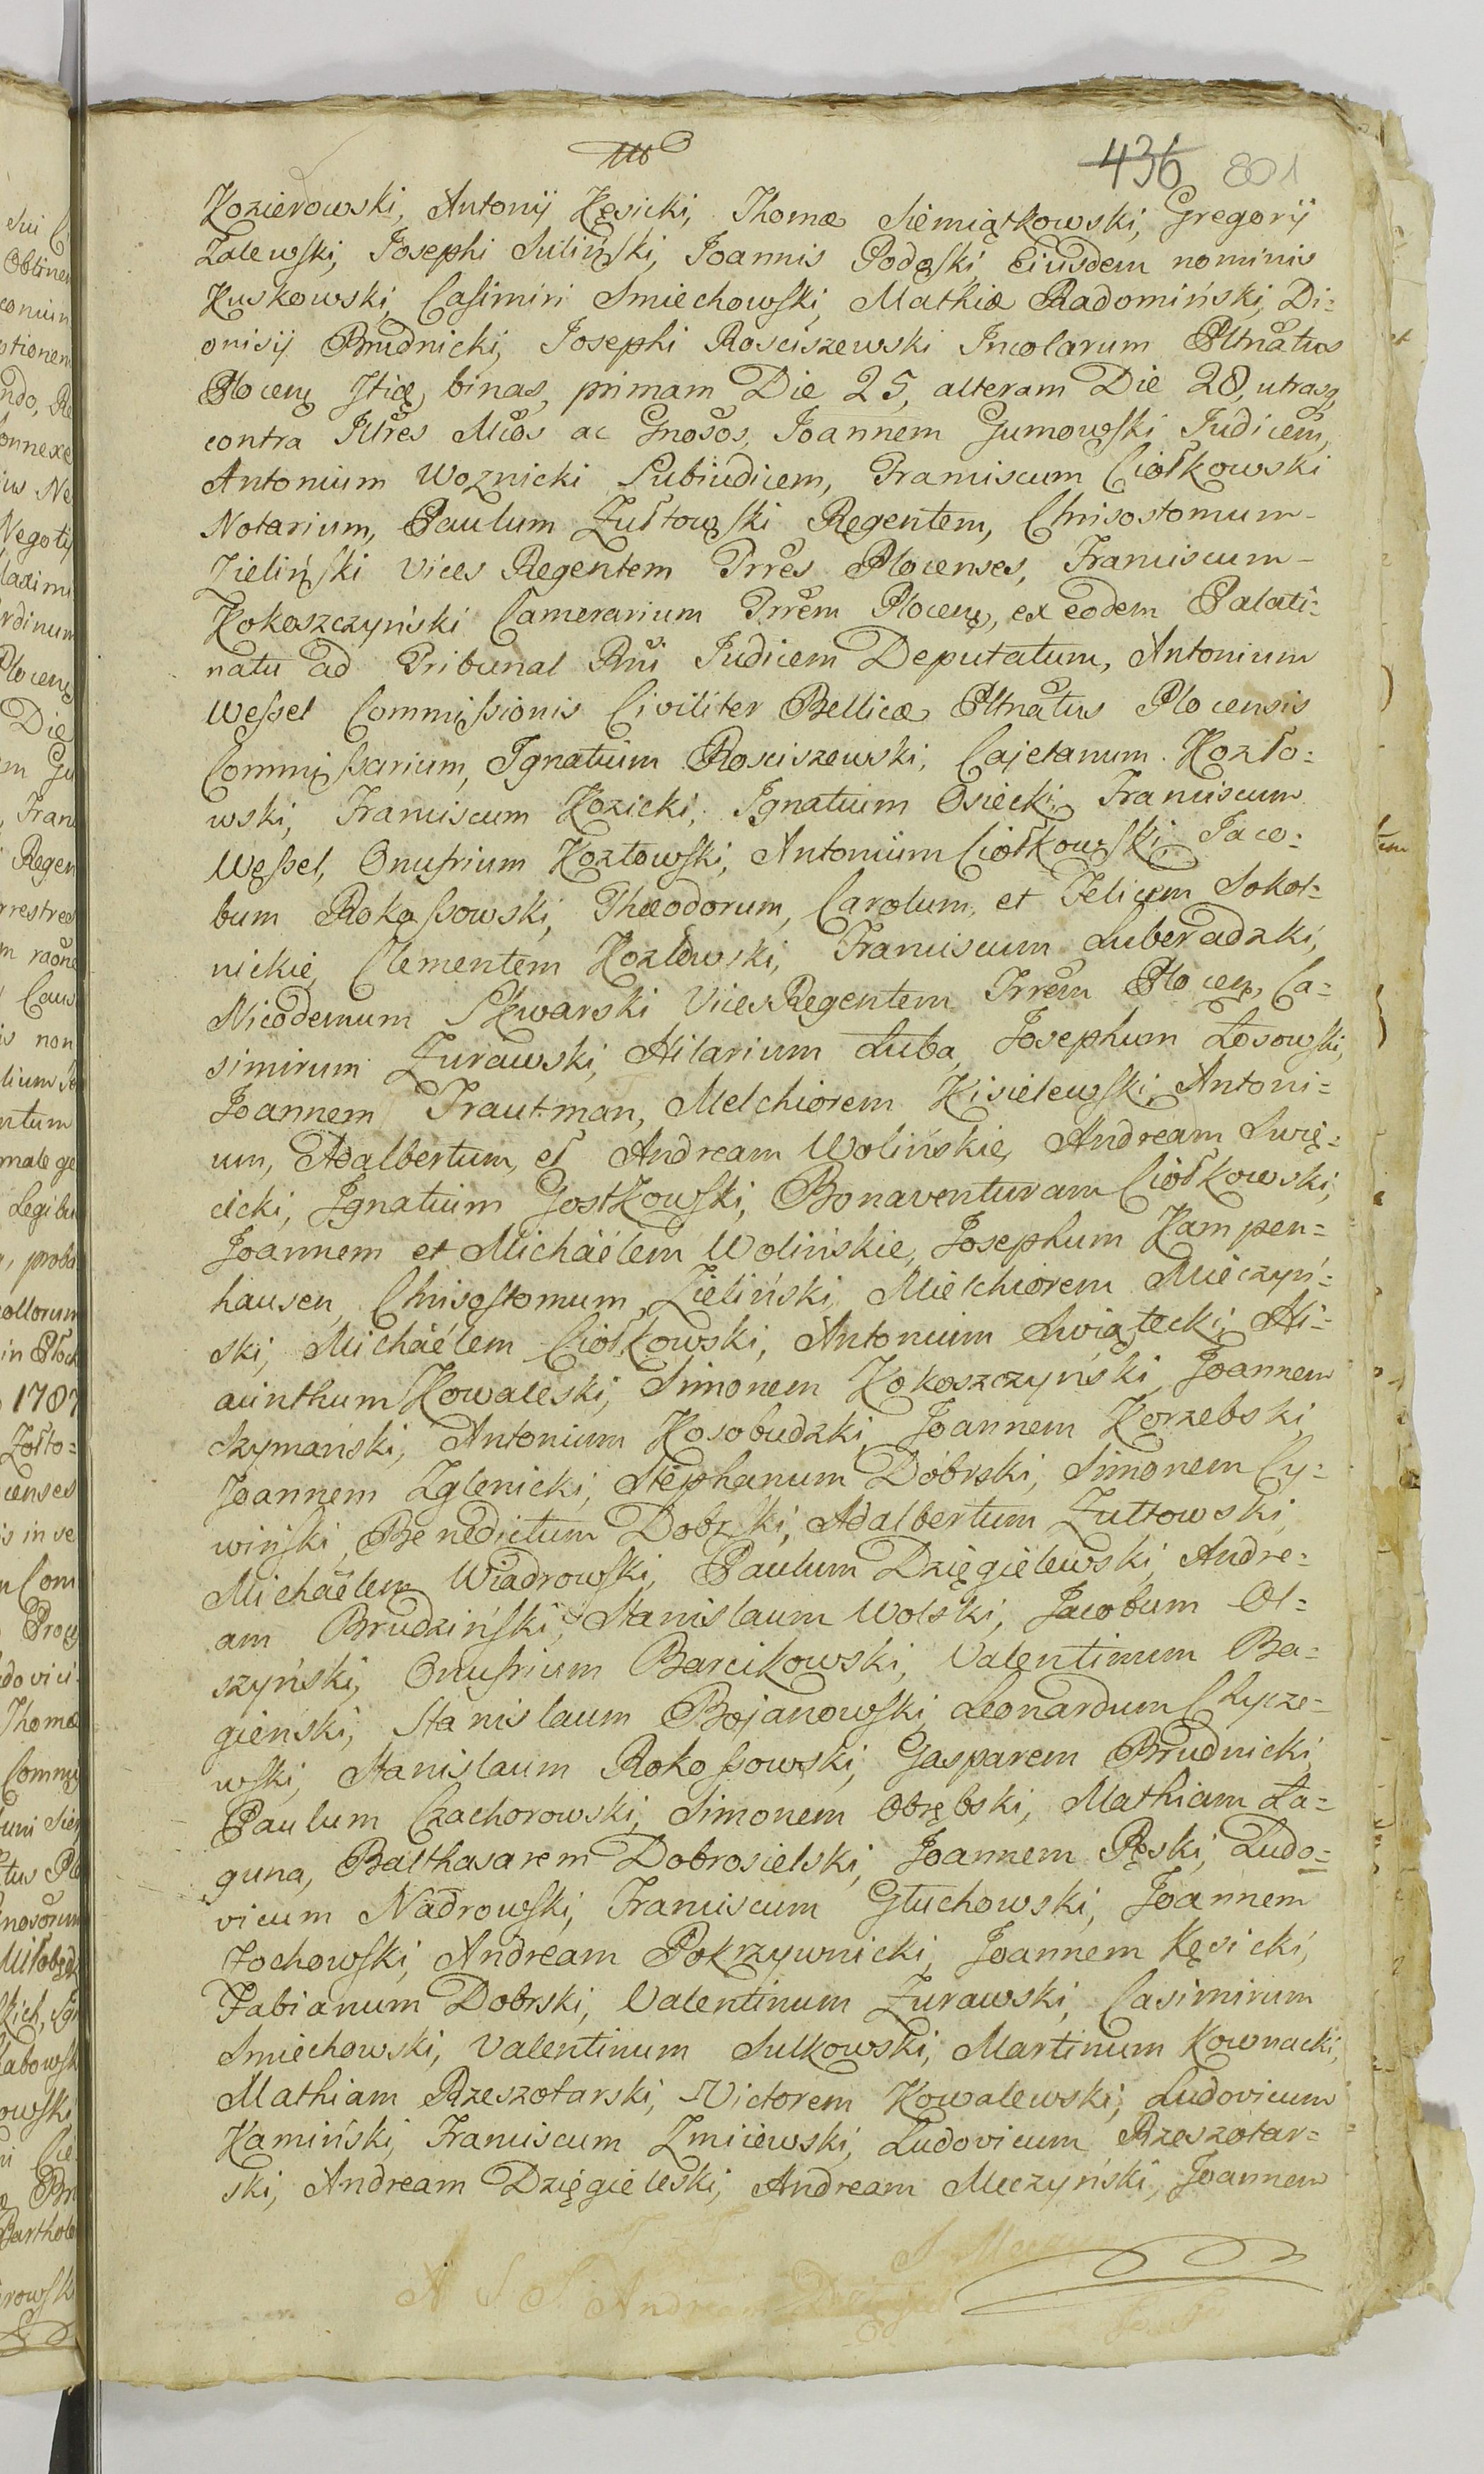 436 801
Kozierowski, Antonij Kęsicki, Thomæ Siemiątkowski, Gregorij
Zalewski, Josephi Suliński, Joannis Podoski, Eiusdem nominis
Kuskowski, Casimiri Smiechowski, Mathiæ Radomiński, Di=
onisij Brudnicki, Josephi Rosciszewski Incolarum Pltnatus
Plocen, Iticę, binas, primam Die 25, alteram Die 28, utrasq,
contra Illres Mcos ac Gnosos, Joannem Gumowski Judicem,
Antonium Woznicki Subiudicem, Franciscum Ciołkowski
Notarium, Paulum Zułtowski Regentem, Chrisostomum
Zieliński Vices Regentem Trres Plocenses, Franciscum
Kokoszczyński Camerarium Trrem Plocen, ex eodem Palati=
natu ad Tribunal Rni Judicem Deputatum, Antonium
Wessel Commissionis Civiliter Bellicæ Pltnatus Plocensis
Commissarium, Ignatium Rosciszewski, Cajetanum Kozło=
wski, Franciscum Kozicki, Ignatium Osiecki, Franciscum
Wessel, Onufrium Kozłowski, Antonium Ciołkowski, Jaco=
bum Rokossowski, Theodorum, Carolum, et Felicem Sokol=
nickie, Clementem Kozłowski, Franciscum Luberadzki,
Nicodemum Skwarski Vices Regentem Trrem Plocen, Ca=
simirum Zurawski, Hilarium Łuba, Josephum Łosowski,
Joannem Trautman, Melchiorem Kisielewski, Antoni=
um, Adalbertum, et Andream Wolińskie, Andream Swię=
cicki, Ignatium Gostkowski, Bonaventuram Ciołkowski,
Joannem et Michäélem Wolińskie, Josephum Kampen=
hausen, Chrisostomum Zieliński, Mielchiorem Mieczyń=
ski, Michäélem Ciołkowski, Antonium Swiątecki, Hi=
acinthum Kowaleski, Simonem Kokoszczyński, Joannem
Szymański, Antonium Kosobudzki, Joannem Korzebski,
Joannem Zglenicki, Stephanum Dobrski, Simonem Cy=
wiński, Benedictum Dobrski, Adalbertum Zułtowski,
Michäélem Wiadrowski, Paulum Dzięgielewski, Andre=
am Brudziński, Stanislaum Wolski, Jacobum Ol=
szyński, Onufrium Barcikowski, Valentinum Ba=
gienski, Stanislaum Bojanowski, Leonardum Chycze=
wski, Stanislaum Rokossowski, Gasparem Brudnicki,
Paulum Czachorowski, Simonem Obrębski, Mathiam Ła=
guna, Balthasarem Dobrosielski, Joannem Pęski, Ludo=
vicum Nadrowski, Franciscum Głuchowski, Joannem
Żochowski, Andream Pokrzywnicki, Joannem Kęsicki,
Fabianum Dobrski, Valentinum Zurawski, Casimirum
Smiechowski, Valentinum Sulkowski, Martinum Kownacki,
Mathiam Rzeszotarski, Victorem Kowalewski, Ludovicum
Kamiński, Franciscum Zmiiewski, Ludovicum Rzeszotar=
ski, Andream Dzięgieleski, Andream Meczyński, Joannem